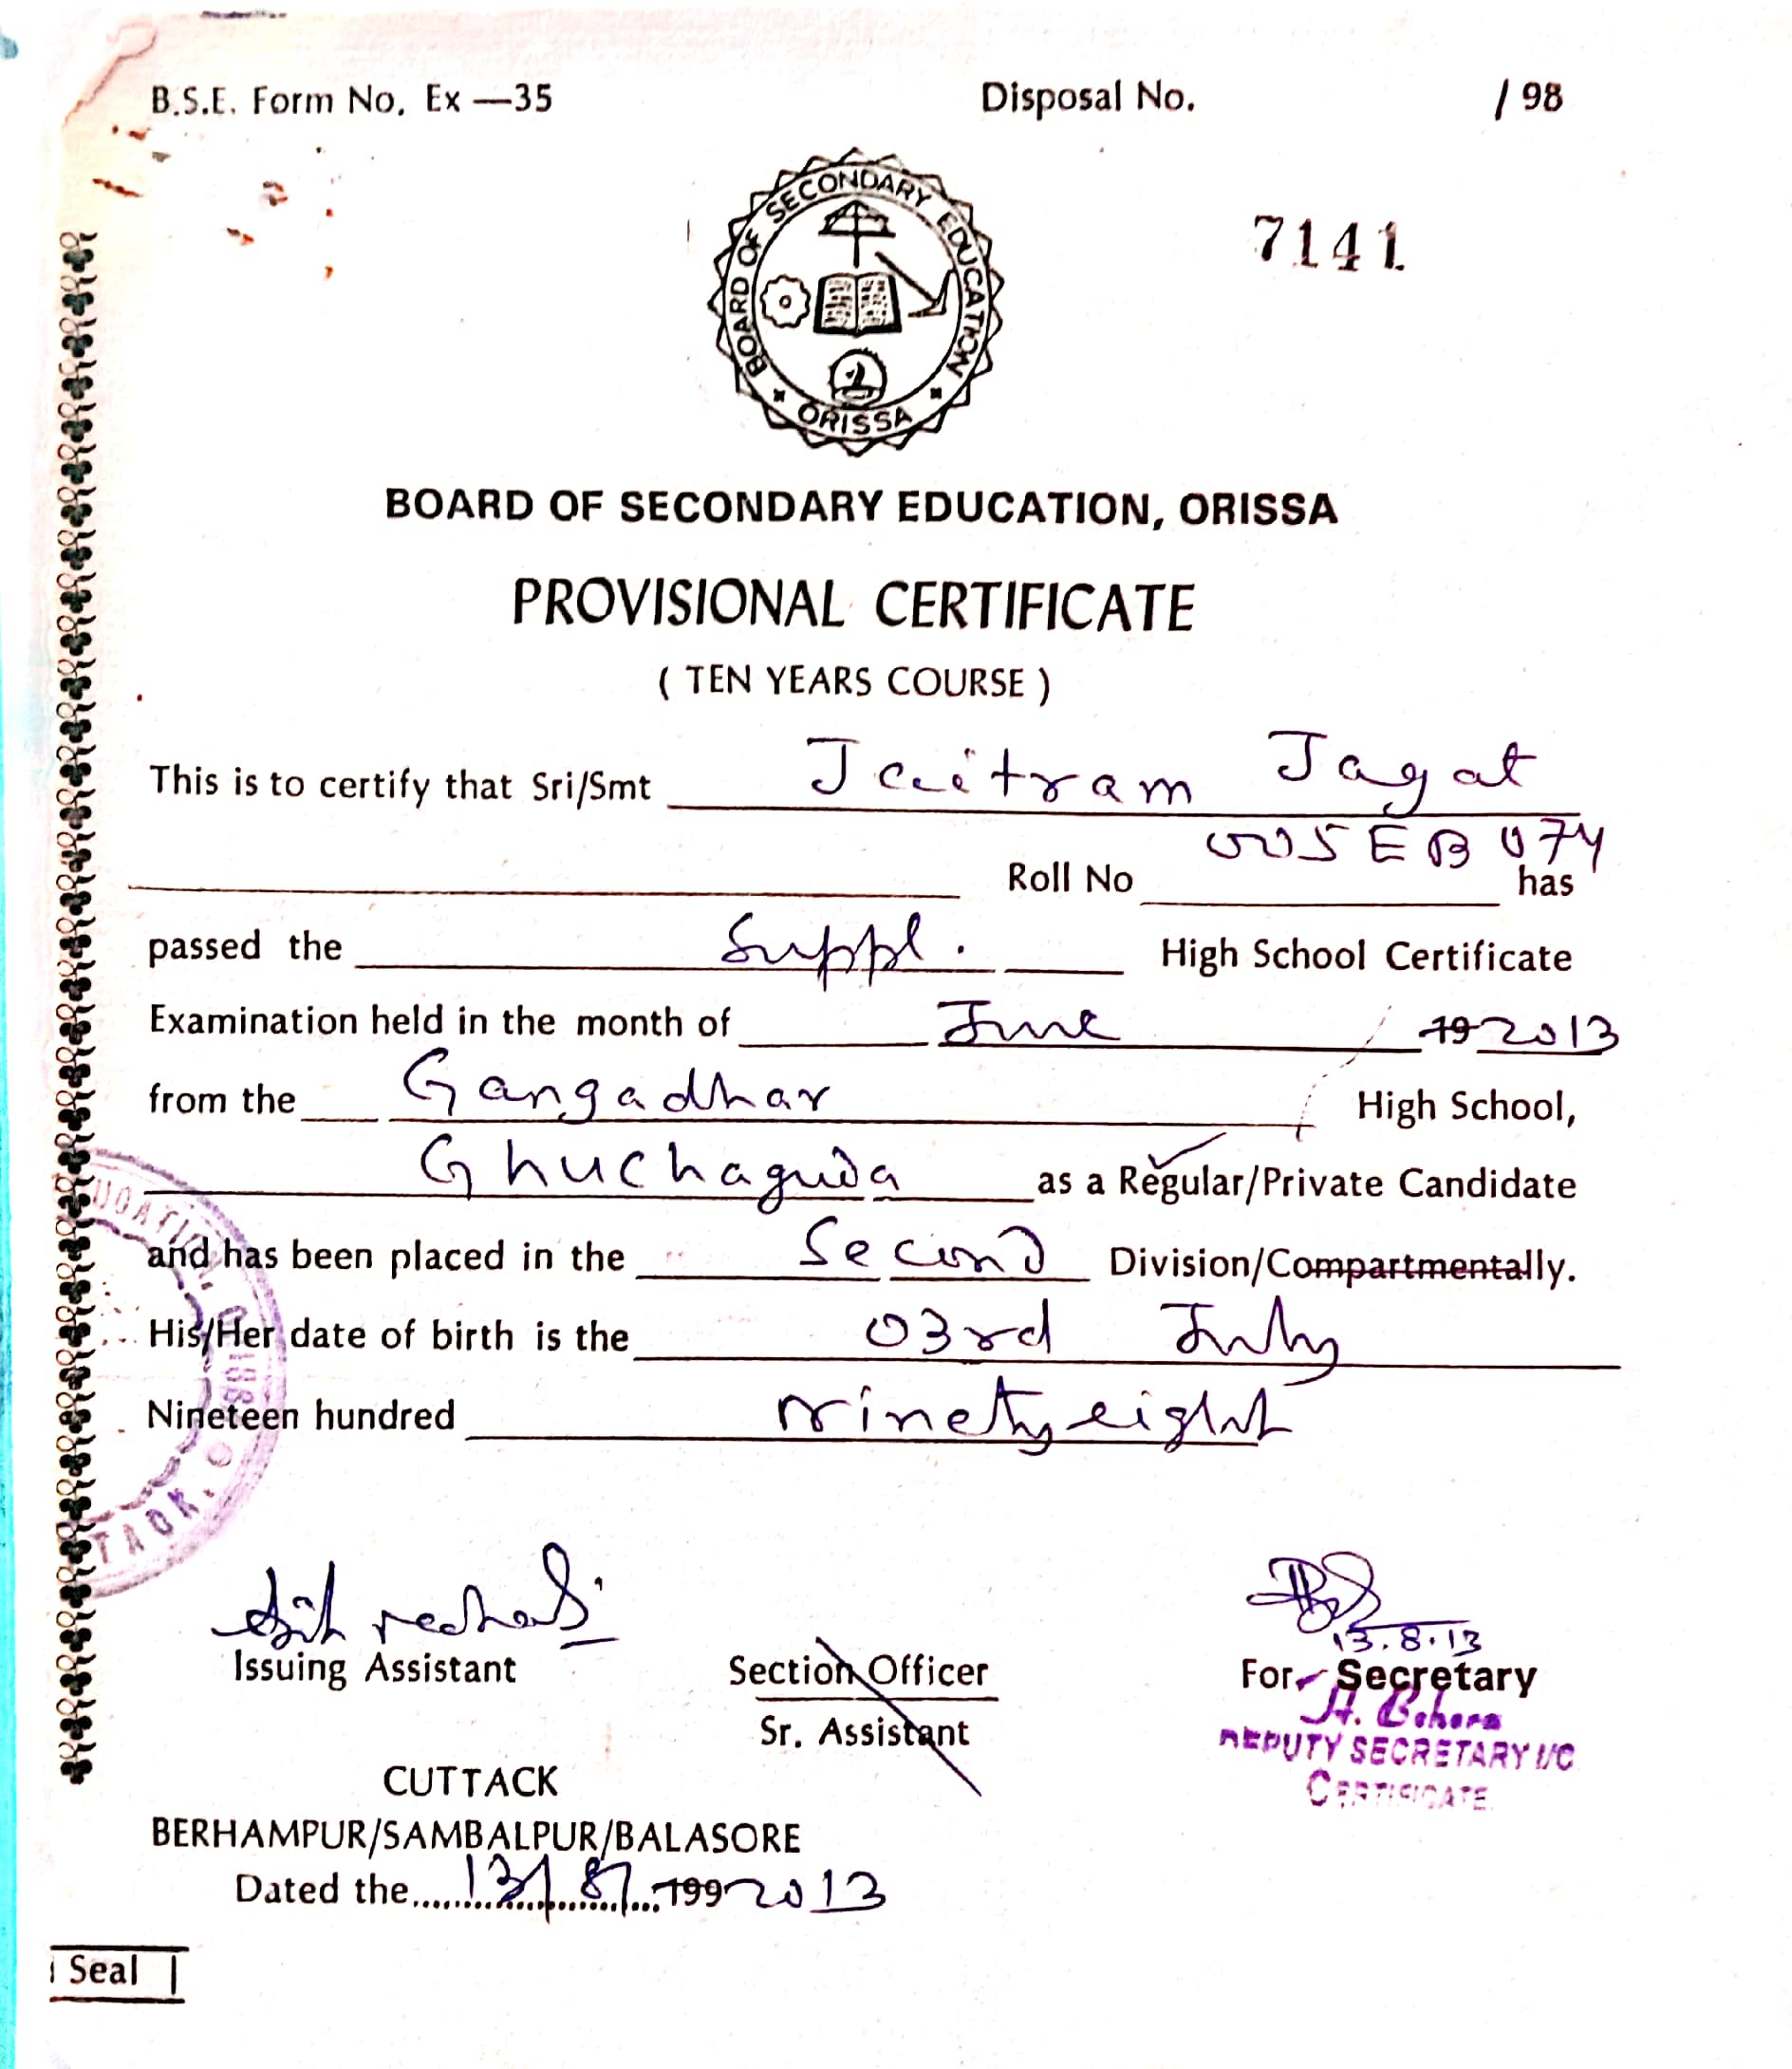 B.S.E. Form No. Ex —35 Disposal No. / 98
BOARD OF SECONDARY EDUCATION
ORISSA
7141
BOARD OF SECONDARY EDUCATION, ORISSA
PROVISIONAL CERTIFICATE
( TEN YEARS COURSE )
This is to certify that Sri/Smt Jaitram Jagat
Roll No 005EB074 has
passed the Suppl. High School Certificate
Examination held in the month of June 19 2013
from the Gangadhar High School,
Ghuchaguda as a Regular/Private Candidate
and has been placed in the Second Division/Compartmentally.
His/Her date of birth is the 03rd July
Nineteen hundred ninety eight
13.8.13
Issuing Assistant Section Officer For Secretary
Sr. Assistant
DEPUTY SECRETARY I/C
CERTIFICATE
CUTTACK
BERHAMPUR/SAMBALPUR/BALASORE
Dated the 13/8/ 199 2013
Seal